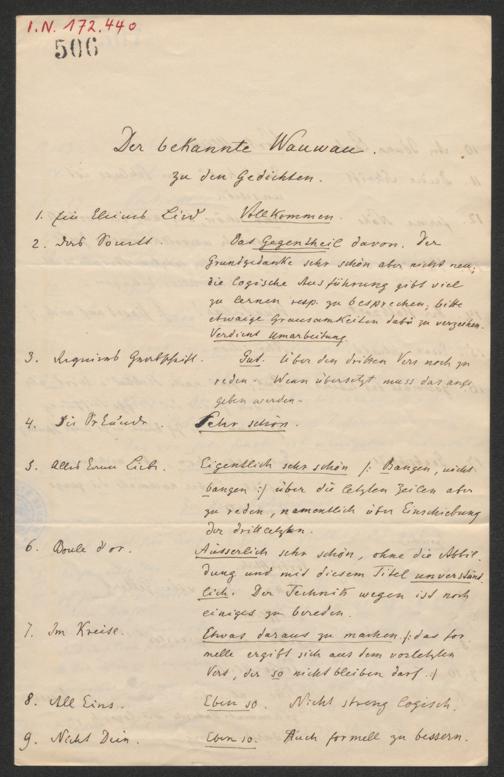 I.N. 172.440
506
Der bekannte Wauwau.
zu den Gedichten.
1. Ein Lied Vollkommen.
2. Das Sonett. Das Gegentheil davon. Der
Grundgedanke sehr schön aber nicht neu;
die logische Ausführung gibt viel
zu lernen resp. zu besprechen; bitte
etwaige Grausamkeiten dabei zu verzeihen.
Verdient Umarbeitung.
3. Grabschrift. Gut. Über den dritten Vers noch zu
reden. Wenn übersetzt muss das ange
geben werden.
4. Die Sekunde. Sehr schön.
5. Alles Liebe. Eigentlich sehr schön /: Bangen, nicht
bangen :/ über die letzten Zeilen aber
zu reden, namentlich über Einschiebung
der drittletzten.
6. Boule d'or. Äusserlich sehr schön, ohne die Abbil
dung und mit diesem Titel unverständ
lich. Der Technik wegen ist noch
einiges zu bereden.
7. Im Kreise. Etwas daraus zu machen /: das for
melle ergibt sich aus dem vorletzten
Vers, der so nicht bleiben darf :/
8. All Eins. Eben so. Nicht streng logisch.
9. Nicht Dein. Eben so. Auch formell zu bessern.